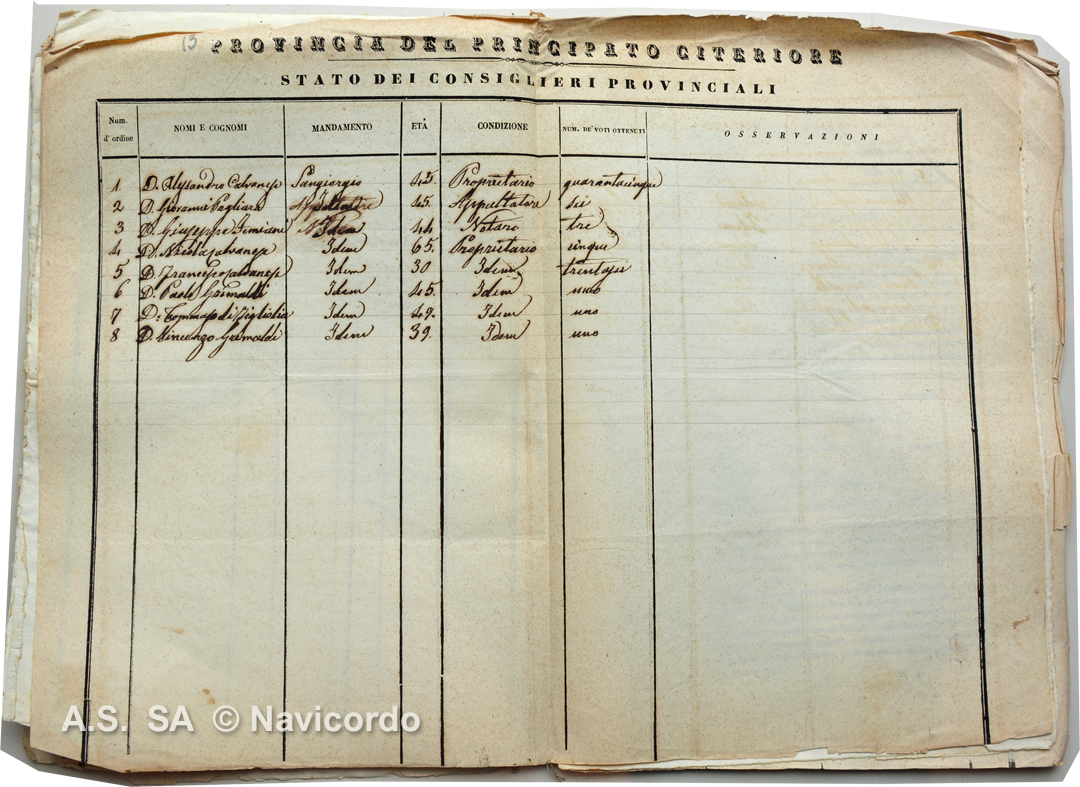 13 PROVINCIA DEL PRINCIPATO CITERIORE
STATO DEI CONSIGLIERI PROVINCIALI
Num. d'ordine NOMI E COGNOMI MANDAMENTO ETÀ CONDIZIONE NUM. DE' VOTI OTTENUTI OSSERVAZIONI
1 D. Alessandro Calvanese Sangiorgio 45. Proprietario quarantacinque
2 D. Giovanni Pagliara 45. Appaltatore sei
3 D. Giuseppe Idem 44 Notaro tre
4 D. Nicola Calvanese Idem 65. Proprietario cinque
5 D. Francesco Calvanese Idem 30 Idem trentasei
6 D. Paolo Grimaldi Idem 45. Idem uno
7 D. Tommaso di Idem 49. Idem uno
8 D. Vincenzo Grimaldi Idem 39. Idem uno
A.S. SA © Navicordo